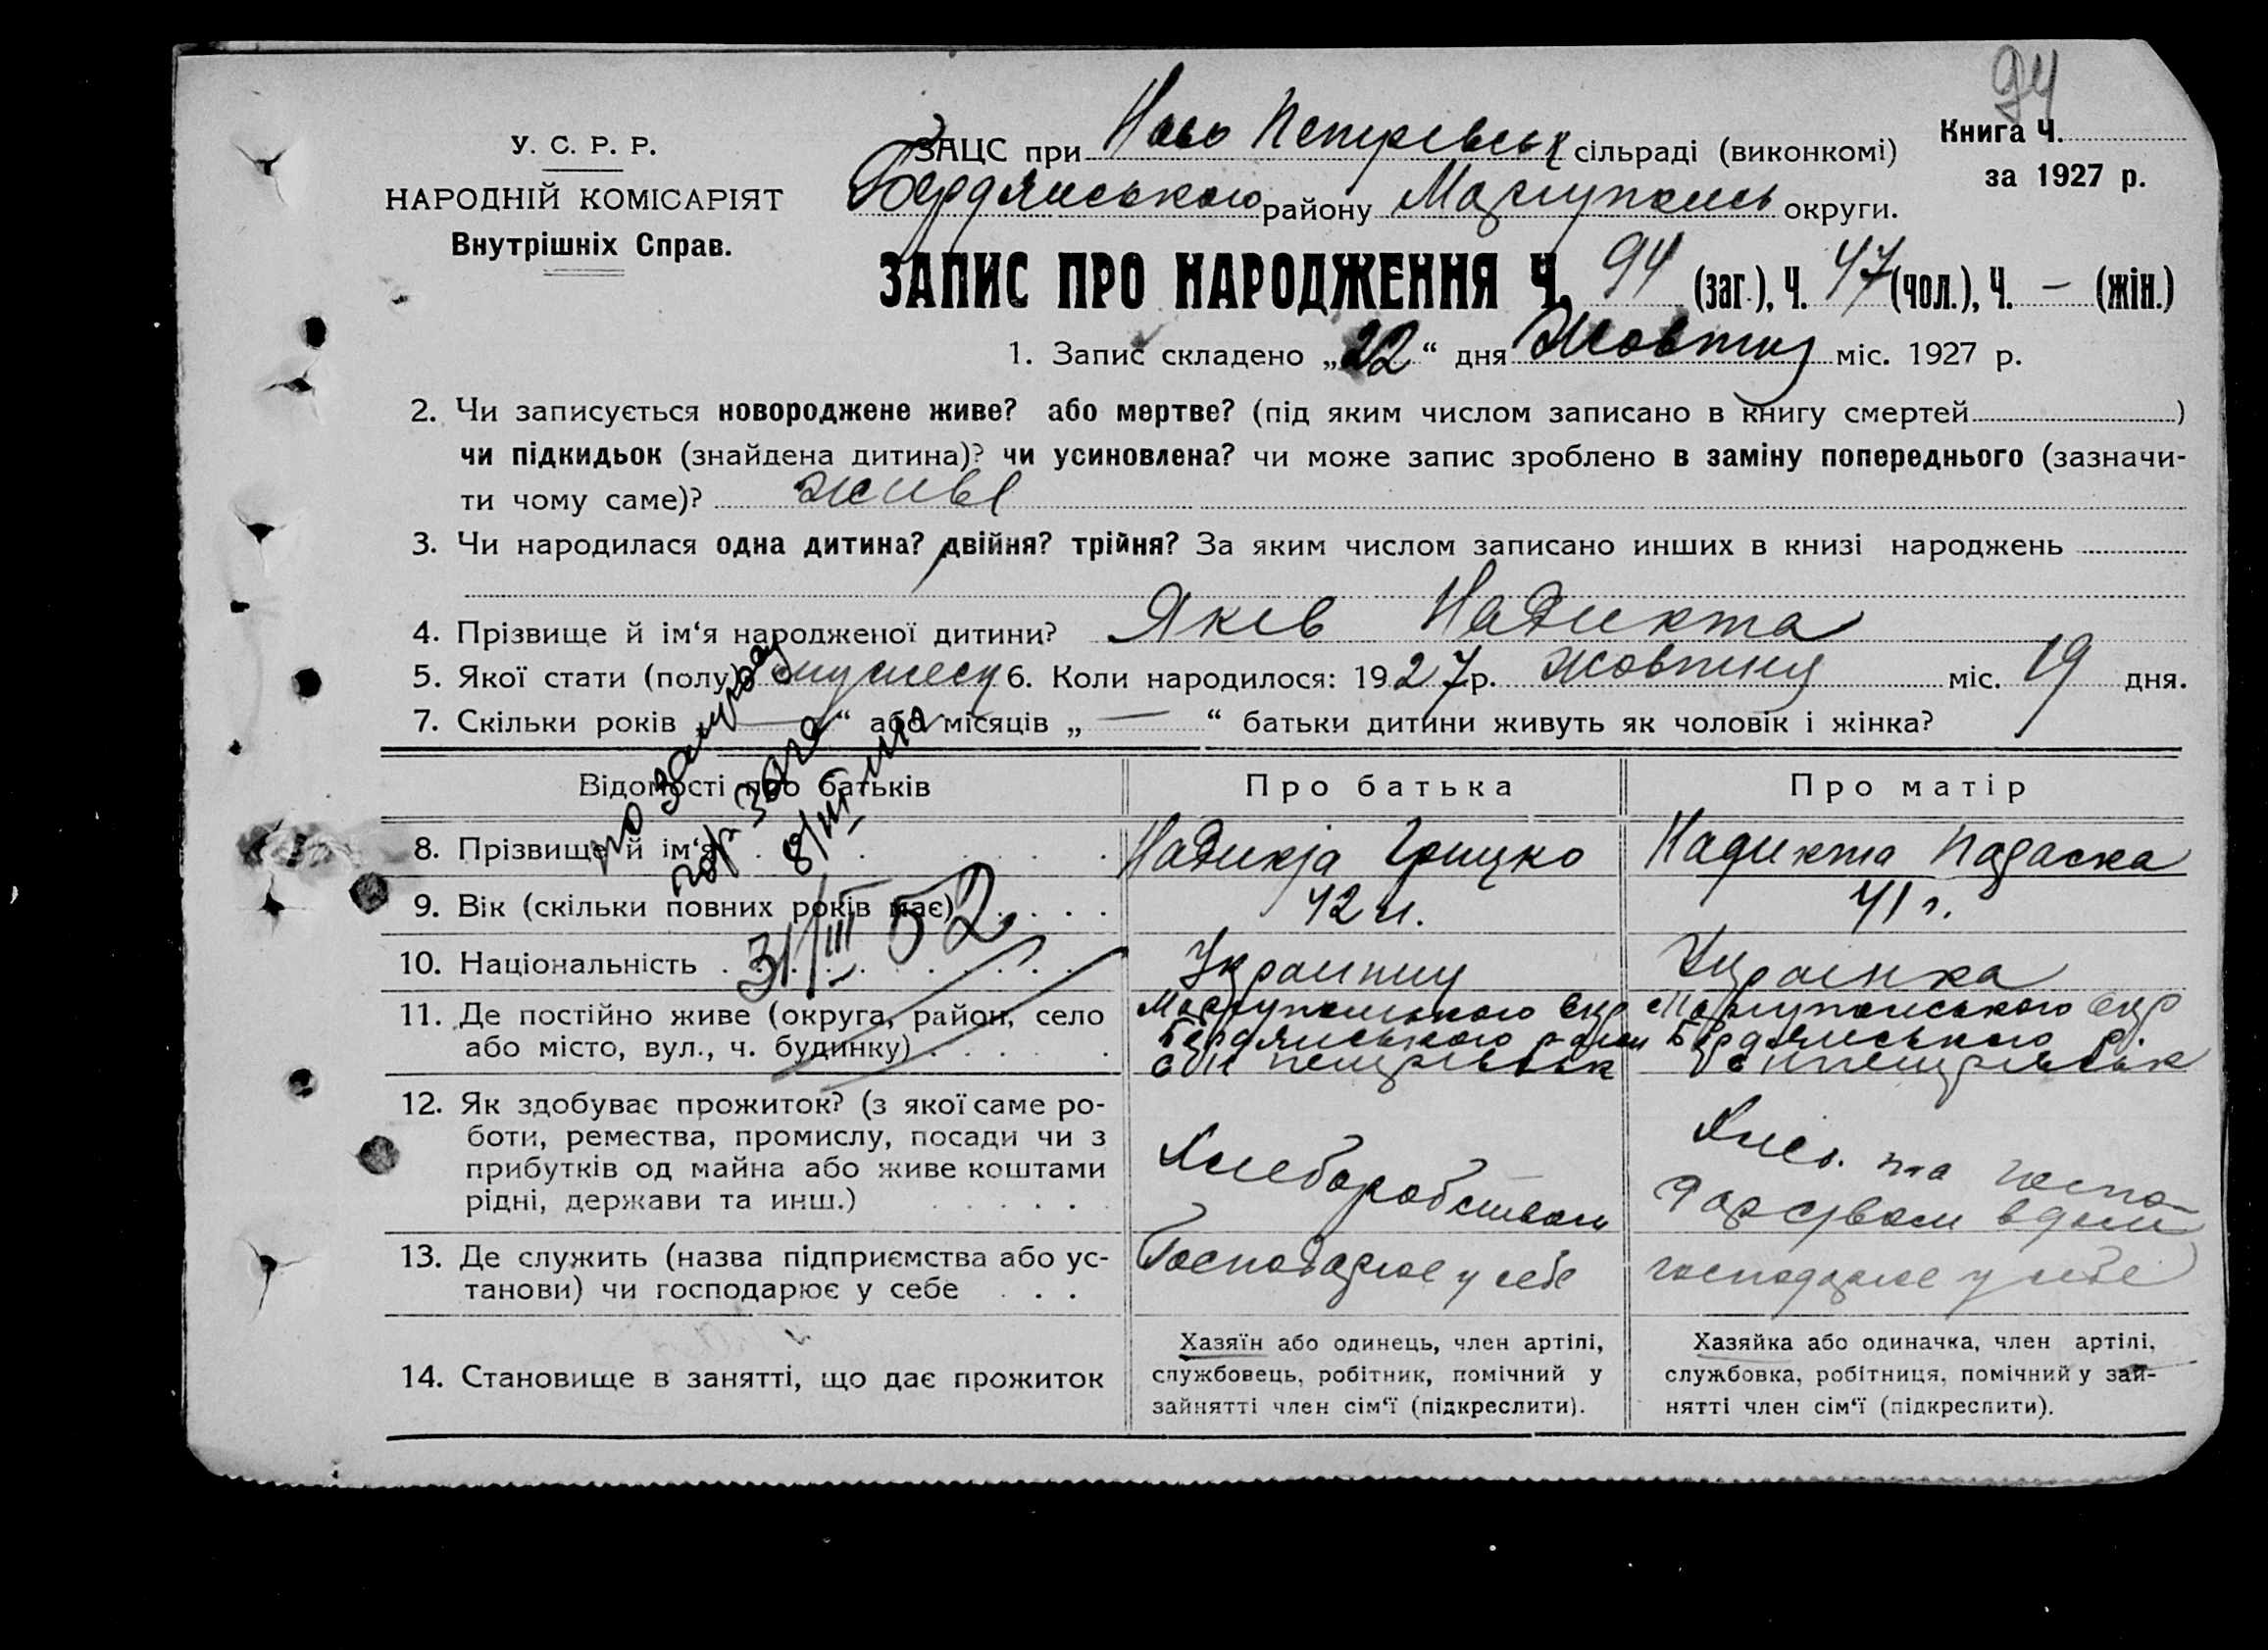 94
У. С. Р. Р.
НАРОДНІЙ КОМІСАРІЯТ
Внутрішніх Справ.
ЗАЦС при Ново Петрівськ сільраді (виконкомі)
Бердянського району Маріупольсь округи.
Книга Ч.
за 1927 р.
ЗАПИС ПРО НАРОДЖЕННЯ Ч. 94 (заг.), Ч. 47 (чол.), Ч. — (жін.)
1. Запис складено „22“ дня Жовтня міс. 1927 р.
2. Чи записується новороджене живе? або мертве? (під яким числом записано в книгу смертей )
чи підкидьок (знайдена дитина)? чи усиновлена? чи може запис зроблено в заміну попереднього (зазначи-
ти чому саме)? живе
3. Чи народилася одна дитина? двійня? трійня? За яким числом записано инших в книзі народжень
4. Прізвище й ім‘я народженої дитини? Яків Надикта
5. Якої стати (полу) 6. Коли народилося: 1927 р. жовтня міс. 19 дня.
7. Скільки років „ — “ або місяців „ — “ батьки дитини живуть як чоловік і жінка?
Відомості про батьків
Про батька
Про матір
8. Прізвище й ім‘я
Надикта Грицко
Надикта Параска
9. Вік (скільки повних років має)
42
41 г.
31/III 52
10. Національність
Українец
Українка
11. Де постійно живе (округа, район, село
або місто, вул., ч. будинку)
Маріупольського окр
Бердянського
Маріупольського окр
Бердянського р.
12. Як здобуває прожиток? (з якої саме ро-
боти, ремества, промислу, посади чи з
прибутків од майна або живе коштами
рідні, держави та инш.)
Хлеборобством
Хлеб. та госпо-
дарством вдома
13. Де служить (назва підприємства або ус-
танови) чи господарює у себе
Господарює у себе
господарює у себе
14. Становище в занятті, що дає прожиток
Хазяїн або одинець, член артілі,
службовець, робітник, помічний у
зайнятті член сім‘ї (підкреслити).
Хазяйка або одиначка, член артілі,
службовка, робітниця, помічний у зай-
нятті член сім‘ї (підкреслити).